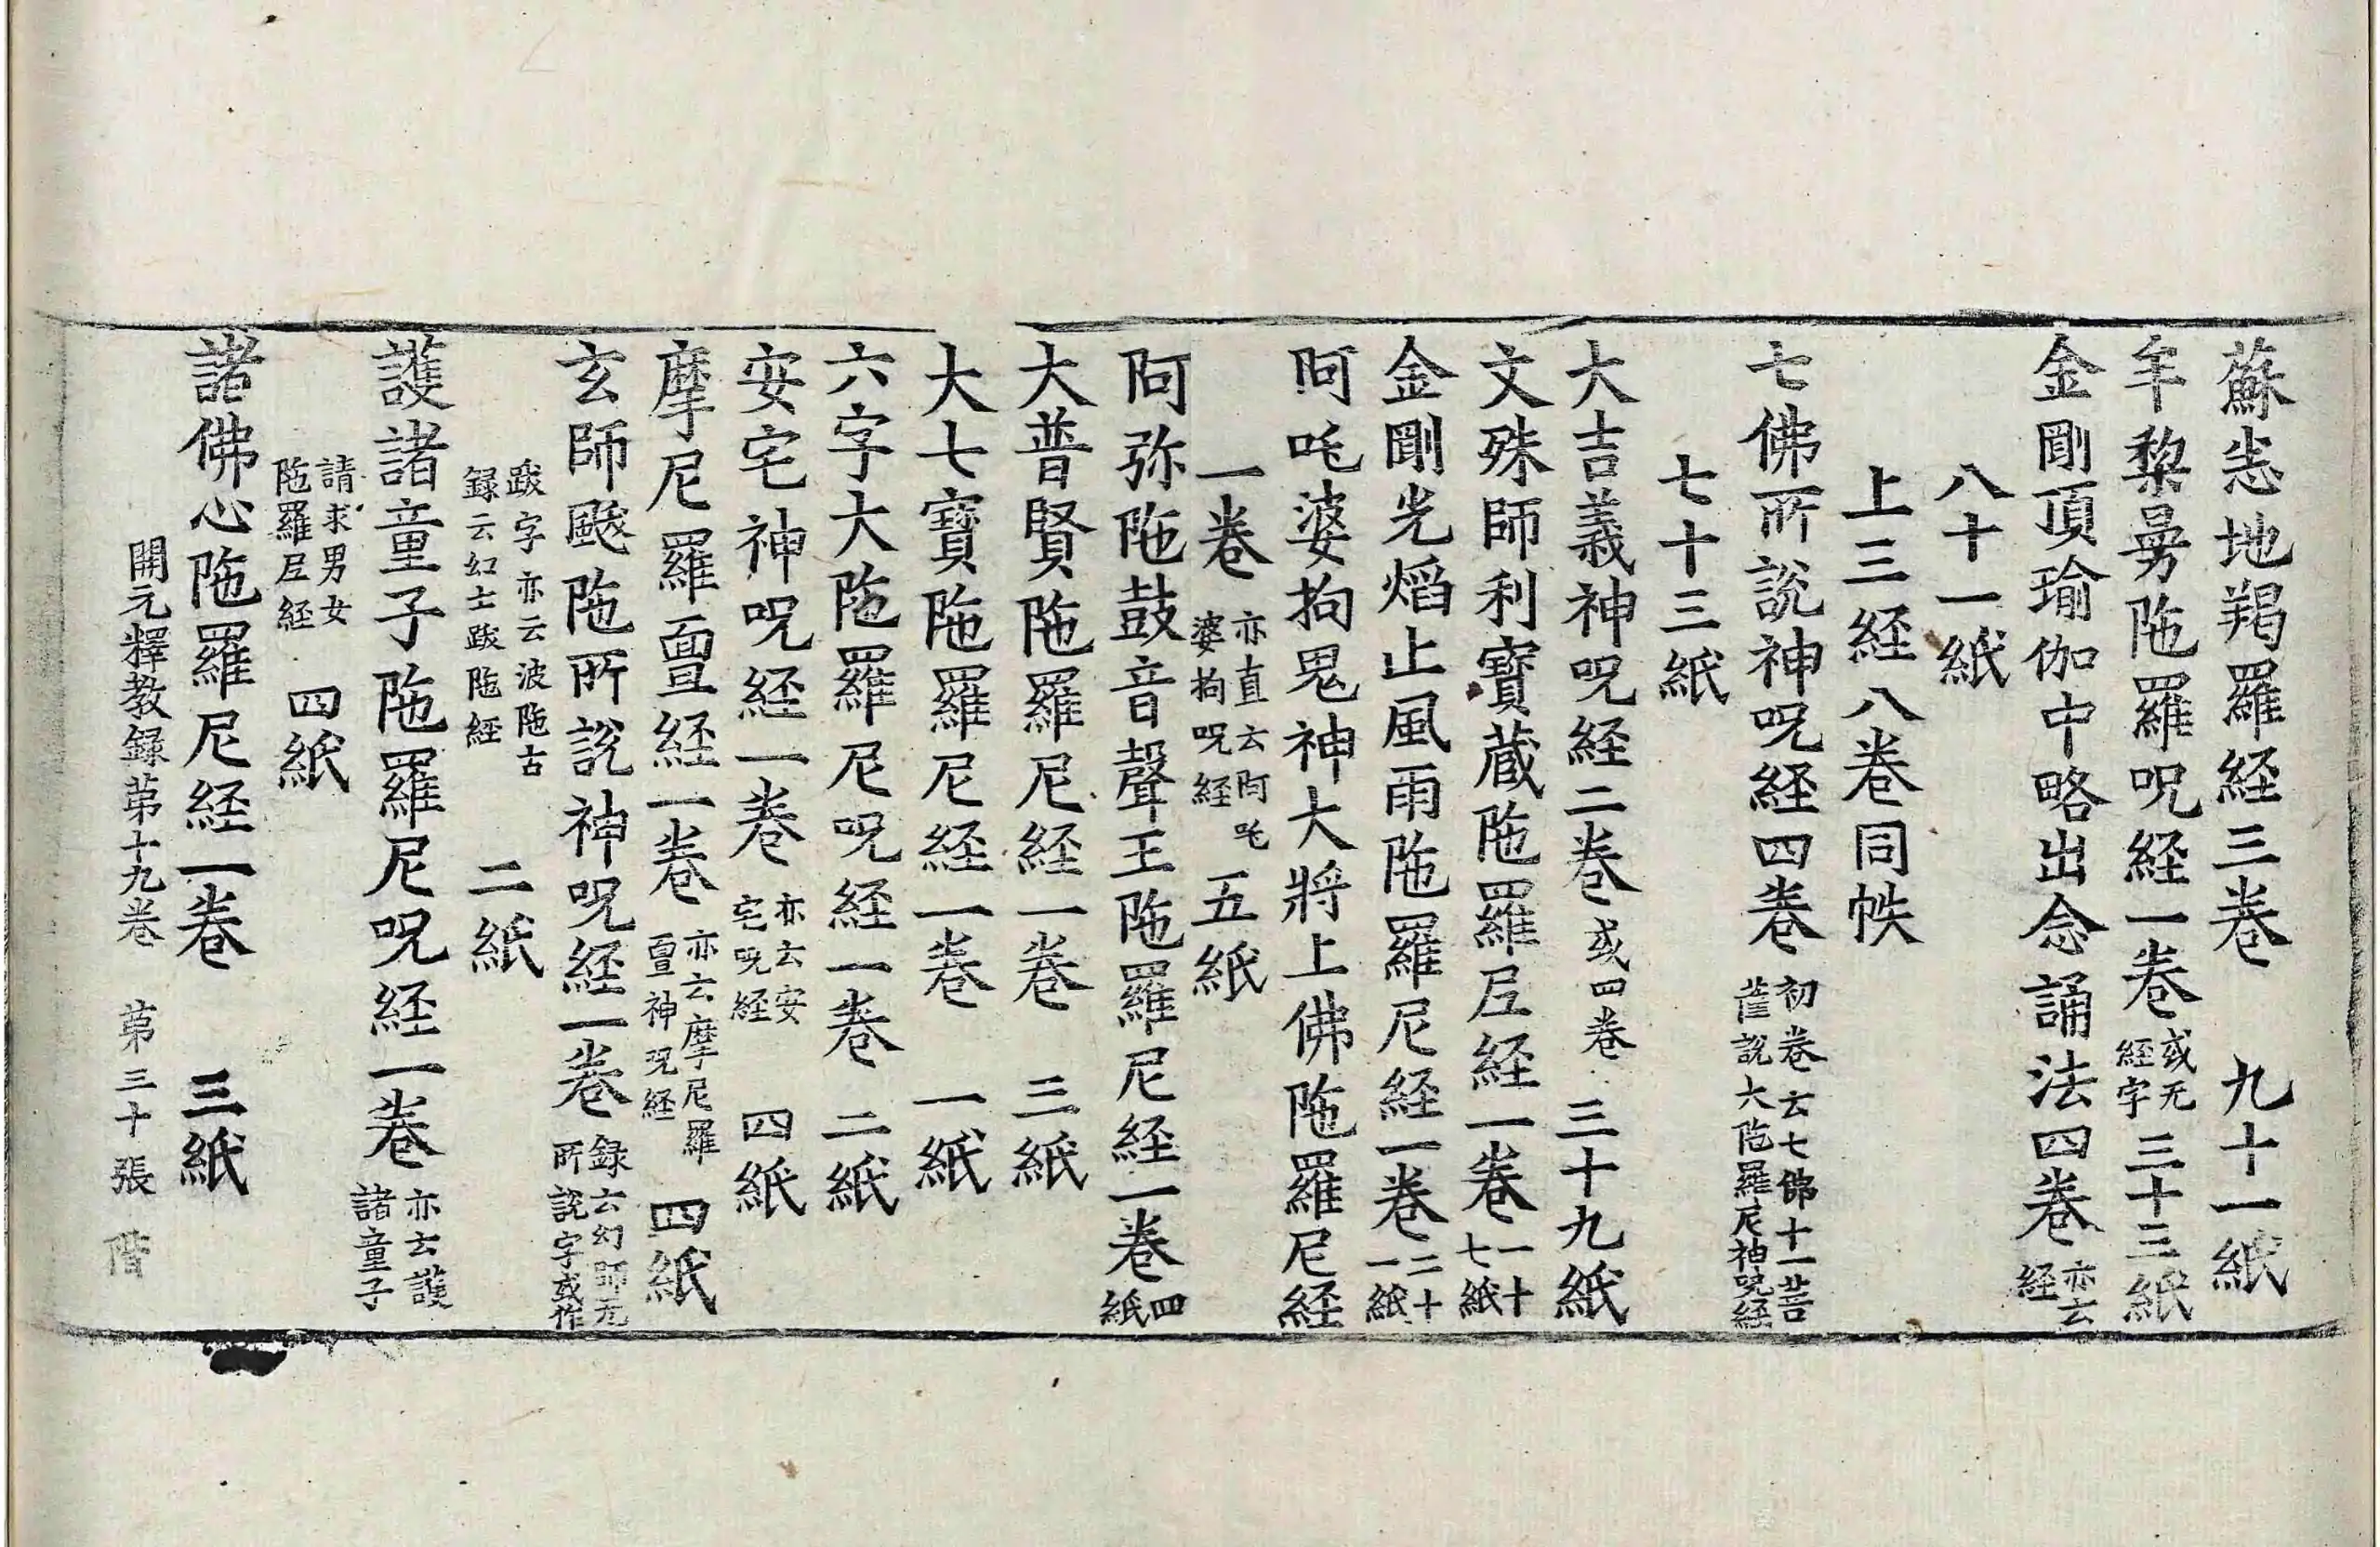 蘇悉地羯羅経三卷　九十一紙
牟棃曼陁羅呪経一卷 或无經字 三十三紙
金剛頂瑜伽中略出念誦法四卷 亦云経
八十一紙
上三経八卷同帙
七佛所說神呪経四卷 初卷云七佛十一菩薩說大陁羅尼神呪経
七十三紙
大吉義神呪経二卷 或四卷 三十九紙
文殊師利寶蔵陁羅尼経一卷 一十七紙
金剛光熖止風雨陁羅尼経一卷 二十一紙
阿吒婆拘鬼神大將上佛陁羅尼経
一卷 亦直云阿吒婆拘呪経 五紙
阿弥陁鼓音聲王陁羅尼経一卷 四紙
大普賢陁羅尼経一卷　三紙
大七寶陁羅尼経一卷　一紙
六字大陁羅尼呪経一卷　二紙
安宅神呪経一卷 亦云安宅呪経 四紙
摩尼羅亶経一卷 亦云摩尼羅亶神呪経 四紙
玄師颰陁所說神呪経一卷 録云幻師无所說字或作
跋字亦云波陁古録云幻士跋陁経　二紙
護諸童子陁羅尼呪経一卷 亦云護諸童子
請求男女陁羅尼経　四紙
諸佛心陁羅尼経一卷　三紙
開元釋教録苐十九卷　苐三十張　階